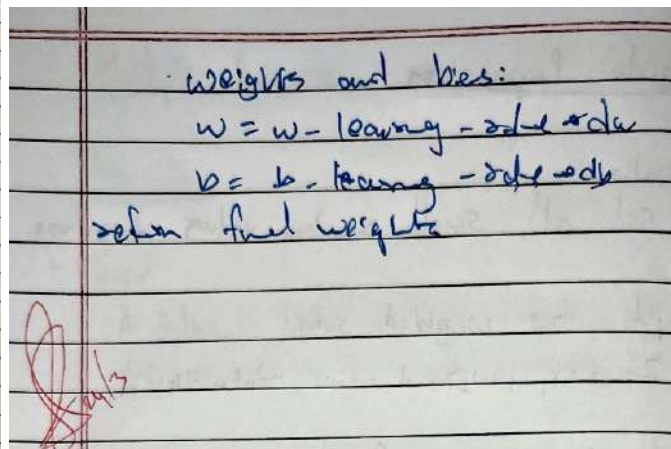 weights and bies:
w = w - learning - rate * dw
b = b - learning - rate * db
return final weights
24/3